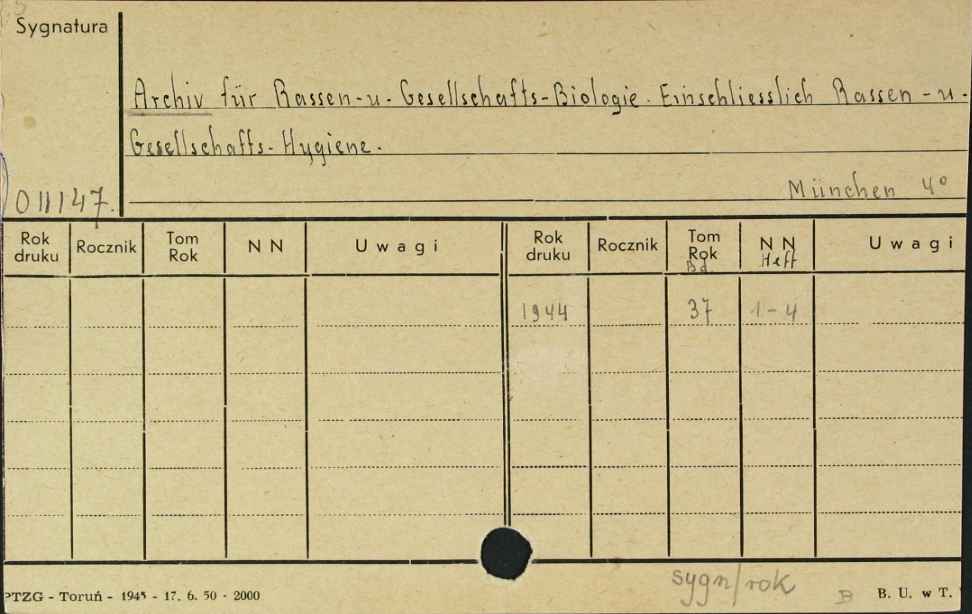 Sygnatura
Archiv für Rassen-u. Gesellschafts-Biologie. Einschliesslich Rassen-u.
Gesellschafts-Hygiene.
München 4°
011147.
Rok druku Rocznik Tom Rok N N Uwagi Rok druku Rocznik Tom Rok Bd. N N Heft Uwagi
1944 37 1-4
sygn/rok
PTZG - Toruń - 1945 - 17. 6. 50 - 2000 B B. U. w T.